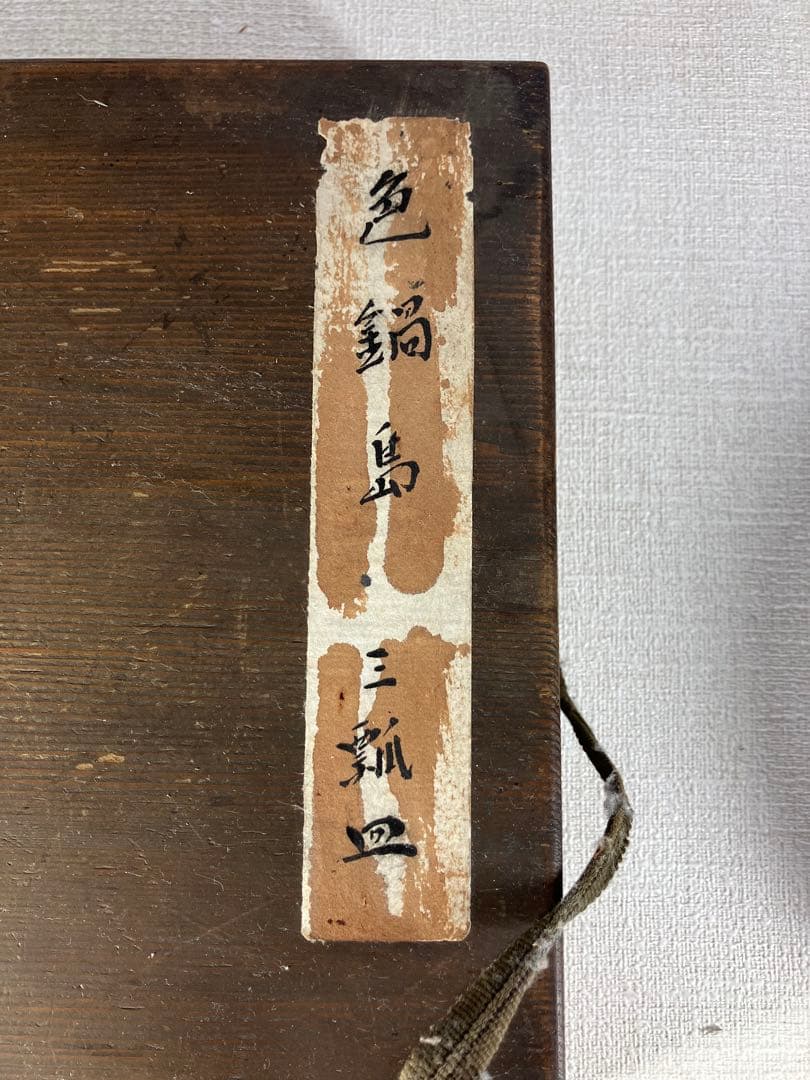 色鍋島三瓢皿